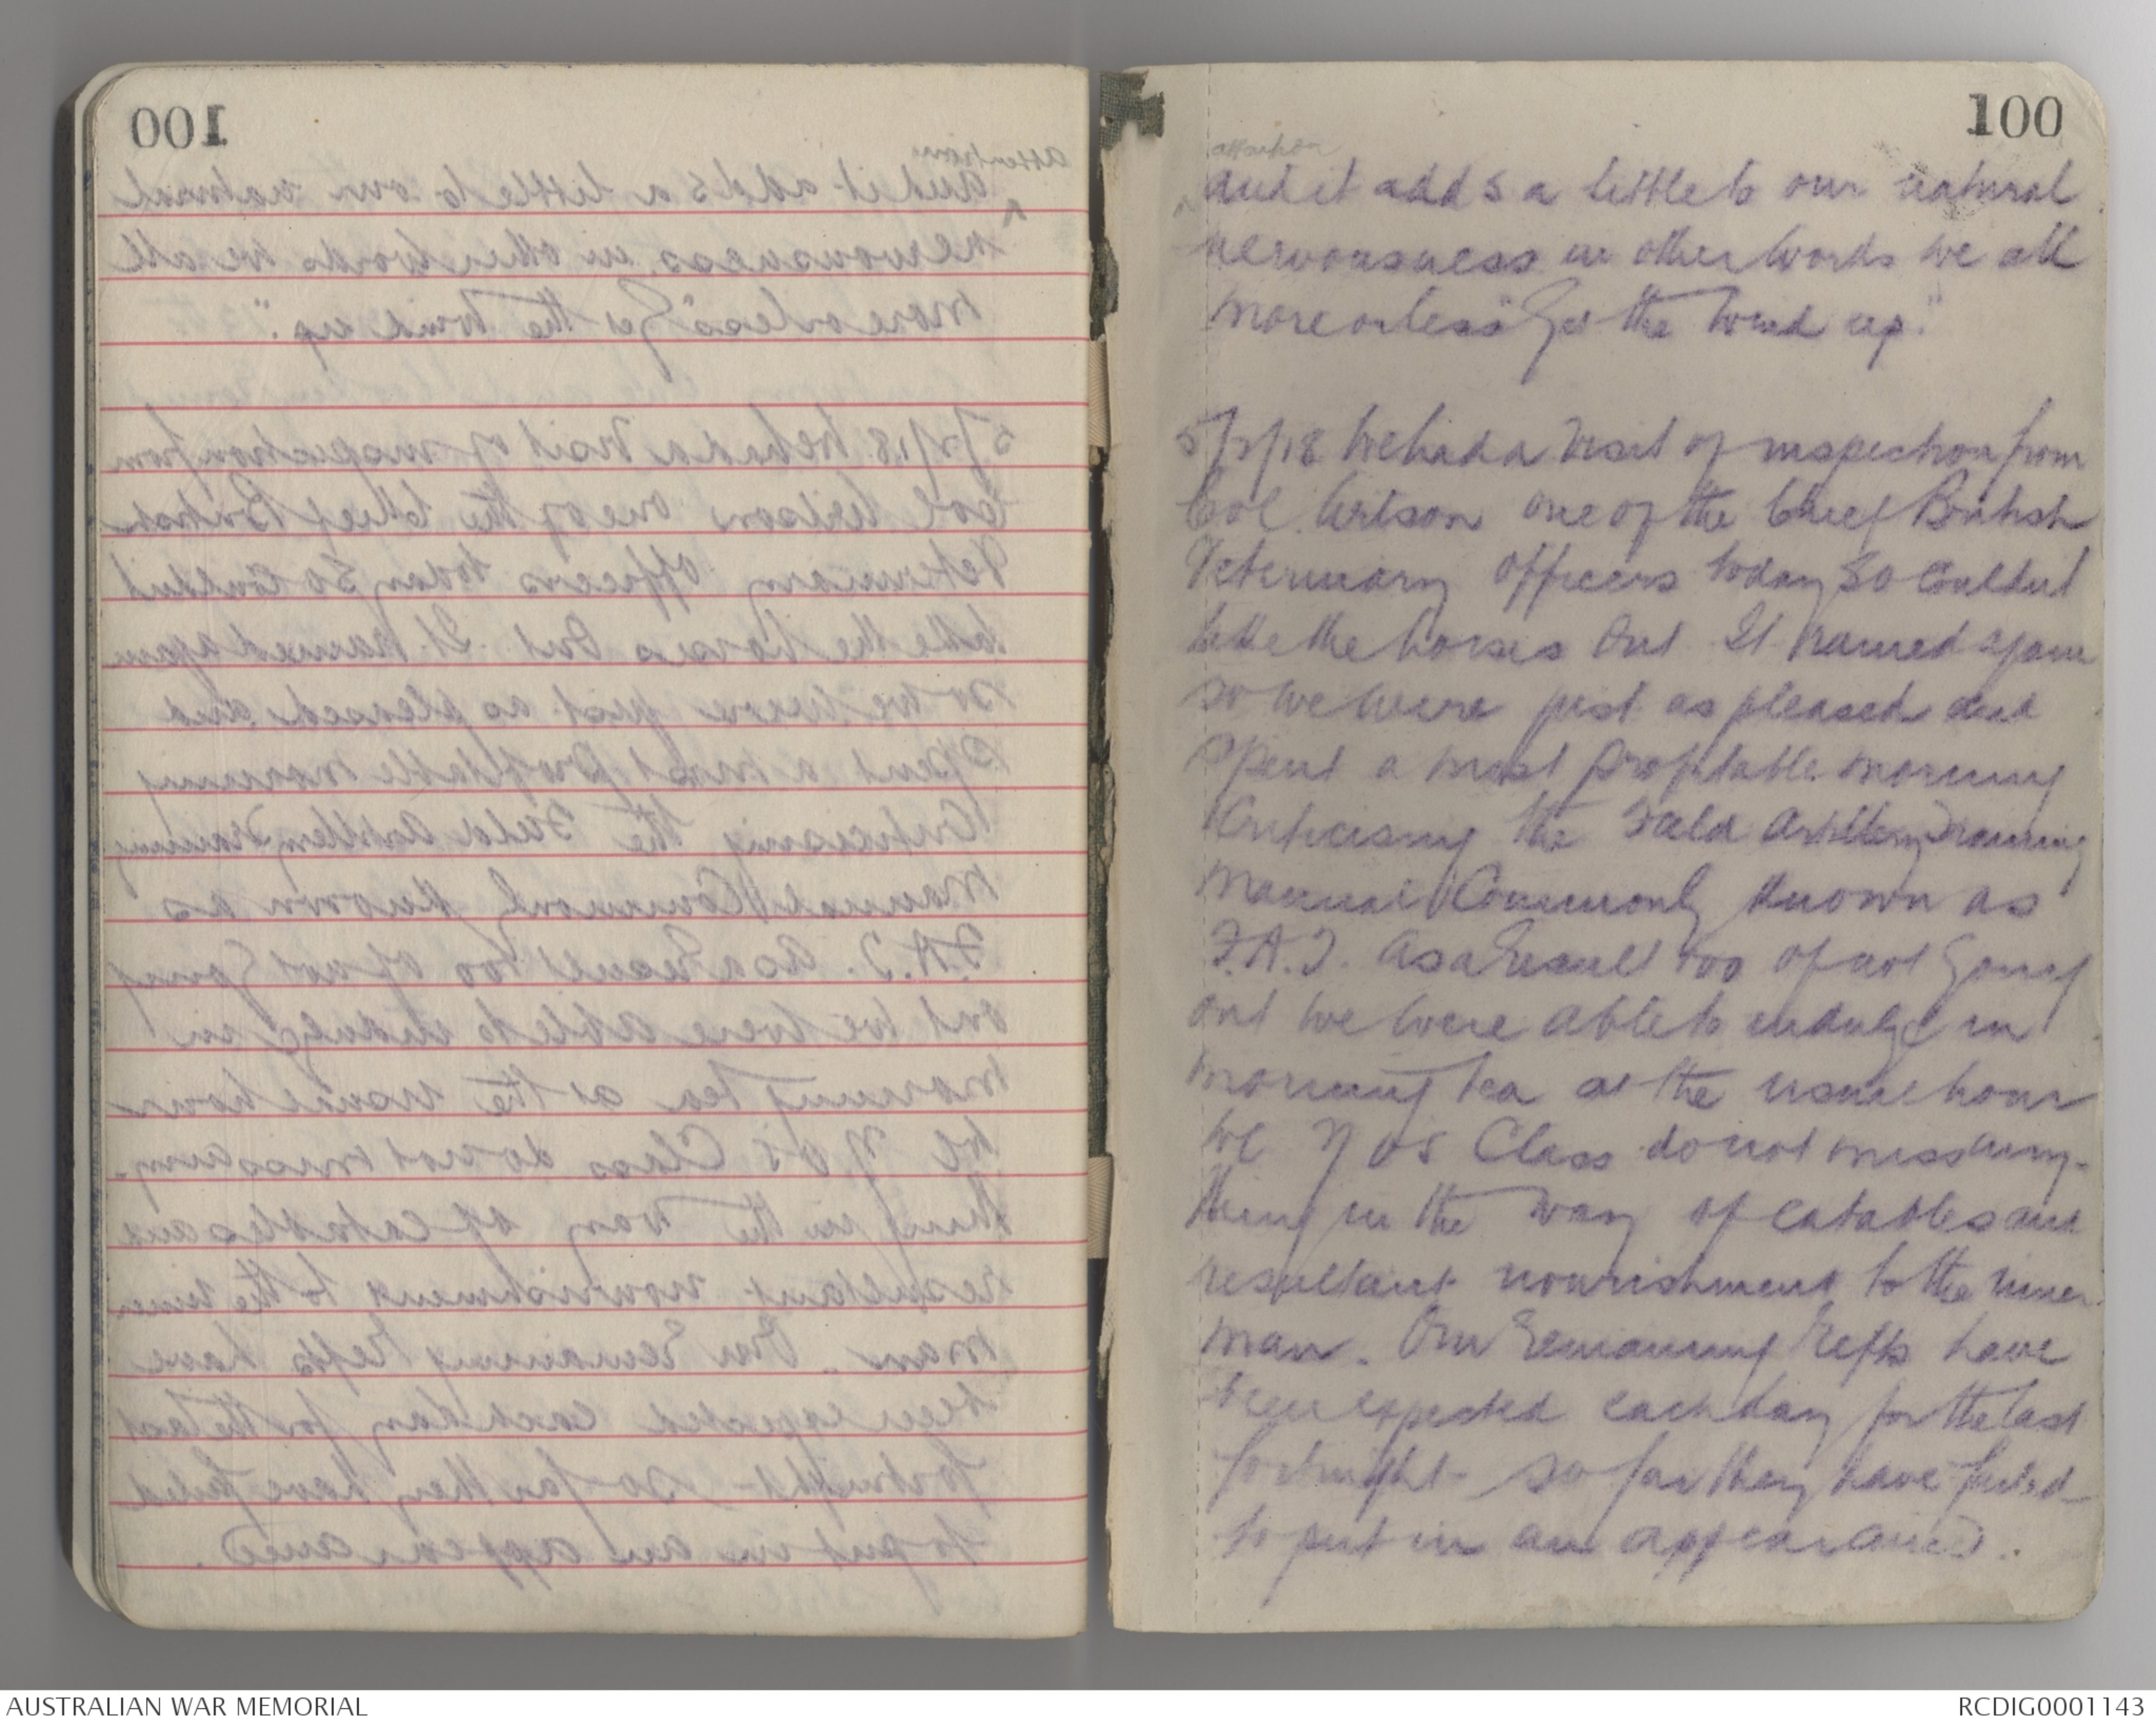 100
attention
and it adds a little to our natural
nervousness in other words we all
more or less "Get the Wind up."
5/2/18 We had a visit of inspection from
Col. Wilson one of the Chief British
Veterinary Officers today so couldnt
take the horses out. It rained again
so we were just as pleased and
spent a most profitable morning
Criticising the Field Artillery Training
Manual Commonly known as
F.A.T. As a result too of not going
out we were able to indulge in
morning tea at the usual hour
We N O's Class do not miss any-
thing in the way of eatables and
resultant nourishment to the inner
man. Our Remaining Refts have
been expected each day for the last
fortnight so far they have failed
to put in an appearance.
AUSTRALIAN WAR MEMORIAL
RCDIG0001143